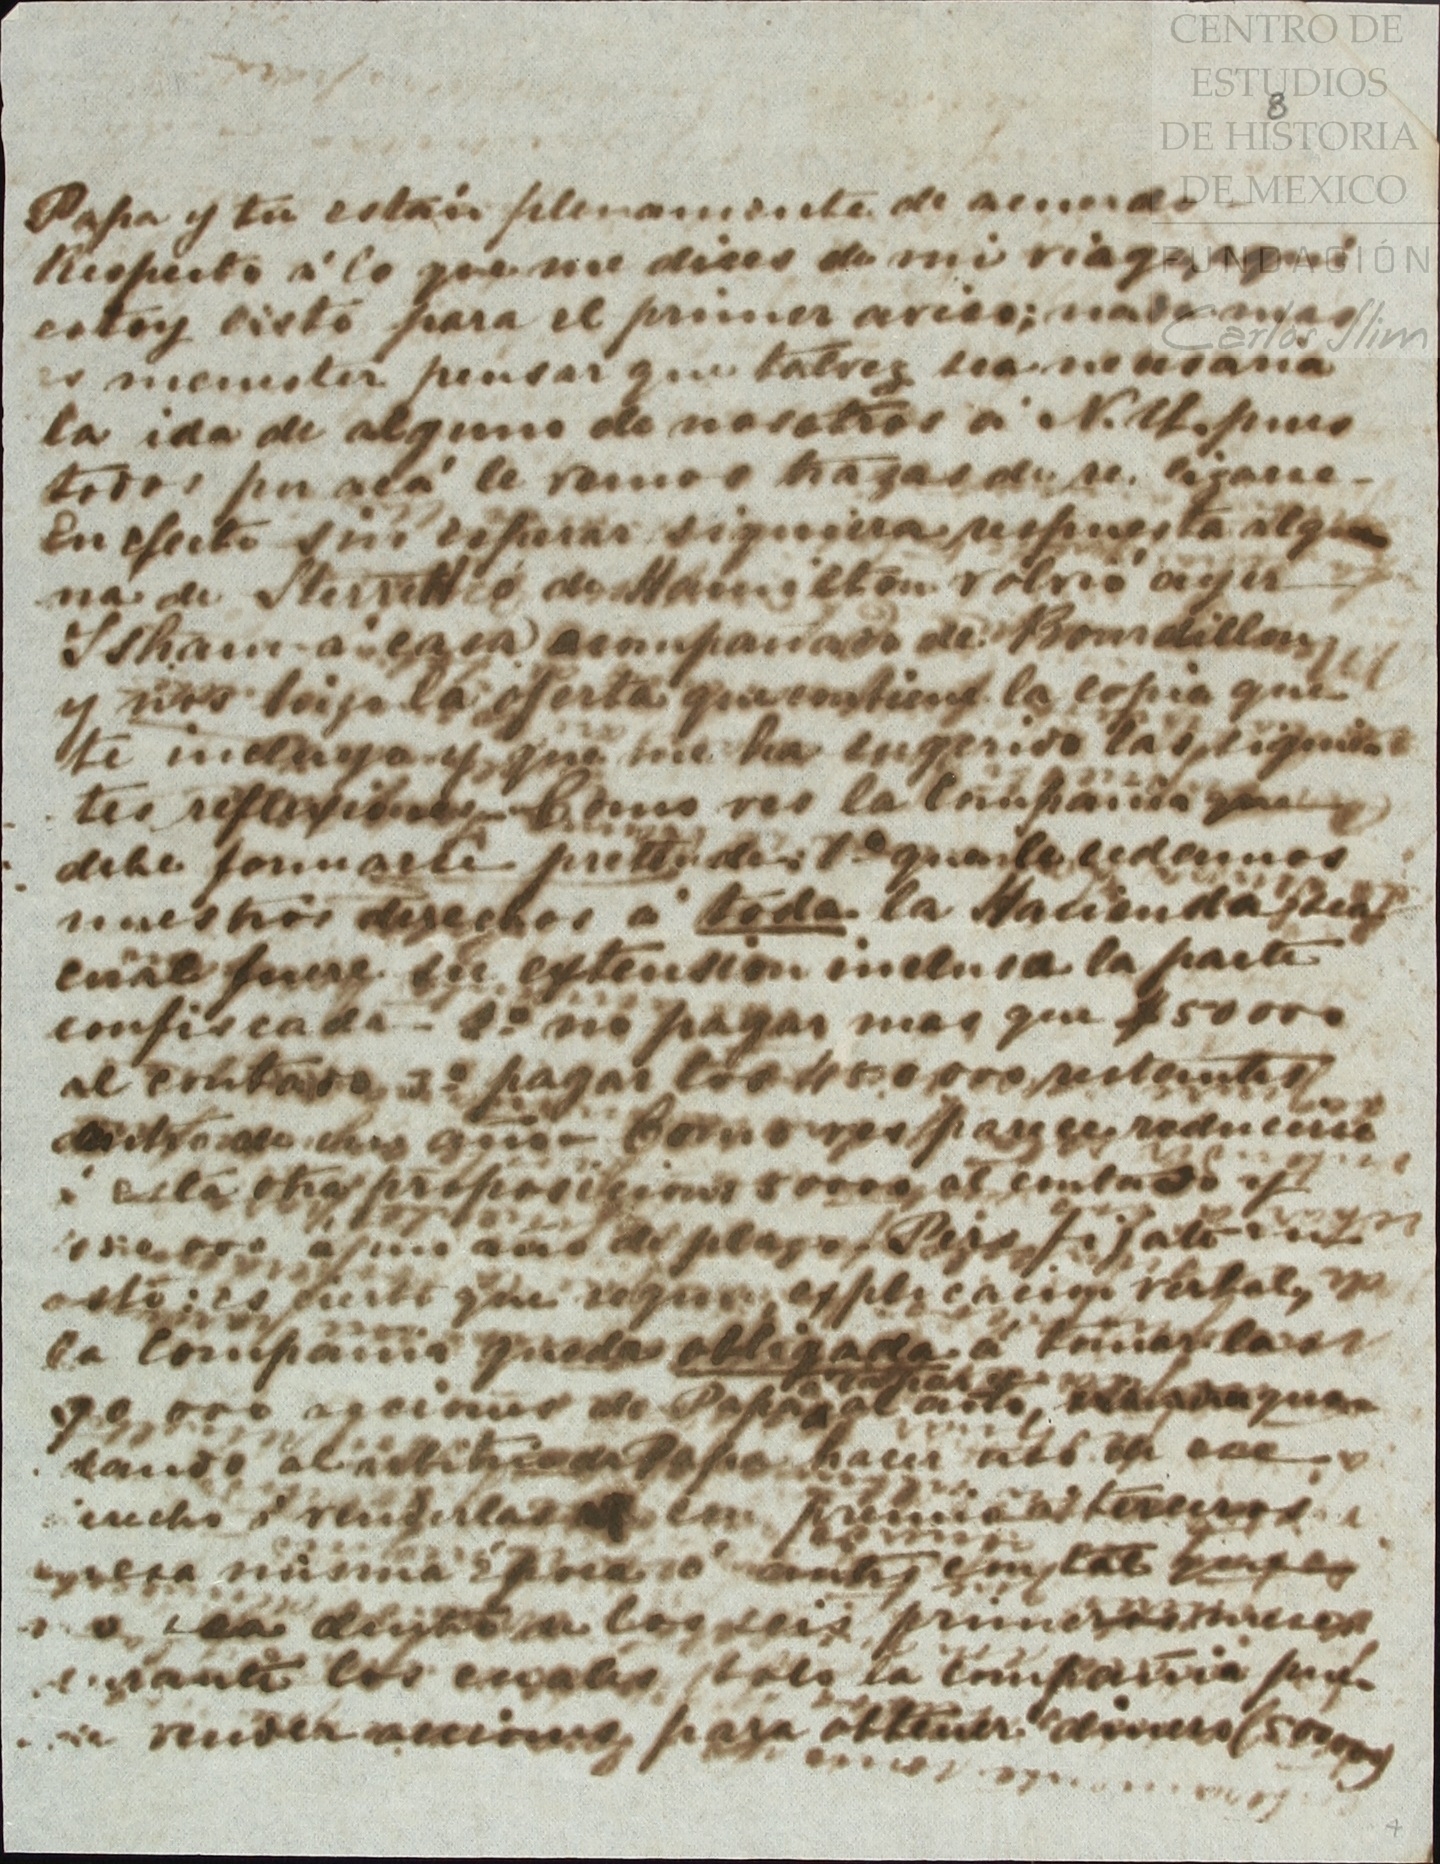 CENTRO DE
ESTUDIOS
DE HISTORIA
DE MEXICO
FUNDACIÓN
Carlos Slim
8
Papa y tu están plenamente de acuerdo
Respecto á lo que me dices de mi viage, qui
estoy listo para el primer aviso; nada mas
es menester pensar que talvez sea necesaria
la ida de alguno de nosotros á N.Y. pues
todos por acá le vemos trazas de
En efecto sin esperar siquiera respuesta algu
na de Sterrett ó de Hamilton volvió ayer
Isham á casa acompañado de Bourdillon
y nos trajo la oferta que contiene la copia que
te incluyo y que me ha sugerido las siguien
tes reflexiones. Como ves la Compañia que
debe formarse pretende; 1º que le cedamos
nuestros derechos á toda la Hacienda sea
cual fuere su extension inclusa la parte
confiscada - 2º no pagar mas que $50000
al contado 3º pagar los 450.000 restantes
dentro de un año - Como ves parece reducirse
á esta otra proposicion: 50000 al contado y
á un año de plazo. Pero fijate en
esto: es cierto que segun esplicacion verbal,
la Compañia queda obligada á tomar las
90 000 acciones de Papa
dando al arbitrio de Papa hacer uso de ese
derecho ó venderlas con premio á terceros
esa misma época ó antes con tal que
no sea dentro de los seis primeros meses
durante los cuales solo la Compañia pue
de vender acciones para obtener dinero (50000)
4